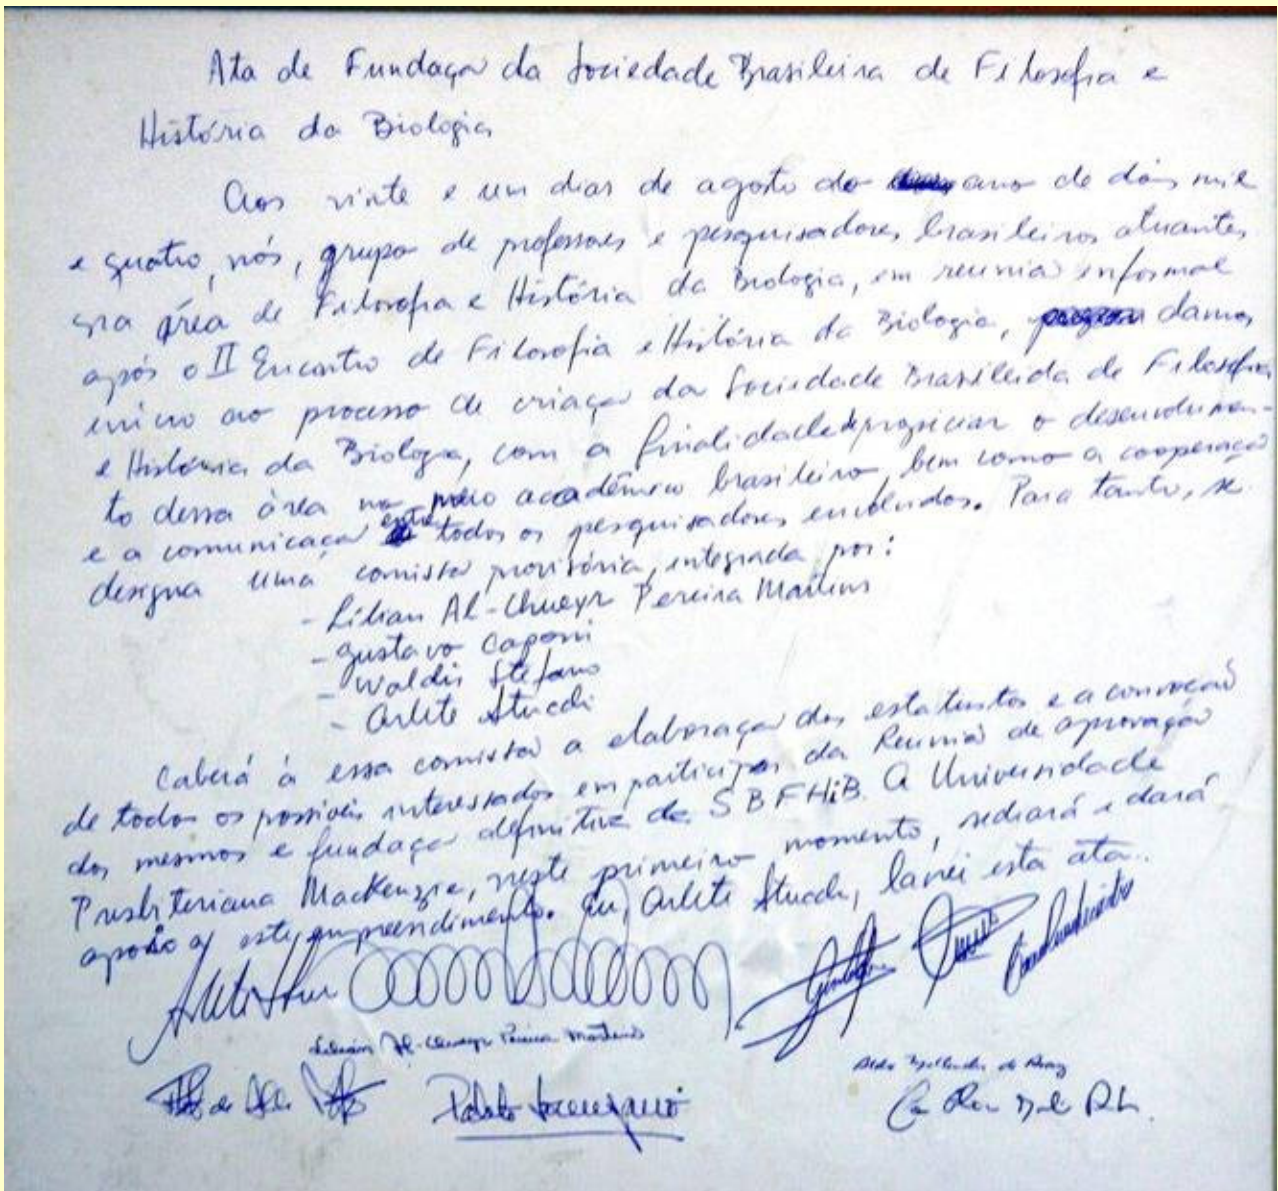 Ata de Fundação da Sociedade Brasileira de Filosofia e
História da Biologia
Aos vinte e um dias de agosto do ano de dois mil
e quatro, nós, grupo de professores e pesquisadores brasileiros atuantes
na área de Filosofia e História da Biologia, em reunião informal
após o II Encontro de Filosofia e História da Biologia, damos
início ao processo de criação da Sociedade Brasileida de Filosofia
e História da Biologia, com a finalidade de propiciar o desenvolvimen-
to dessa área no meio acadêmico brasileiro, bem como a cooperação
e a comunicação entre todos os pesquisadores envolvidos. Para tanto, se
designa uma comissão provisória, integrada por:
- Lilian Al-Chueyr Pereira Martins
- Gustavo Caponi
- Waldir Stefano
- Arlete Stucchi
Caberá à essa comissão a elaboração dos estatutos e a convocação
de todos os possíveis interessados em participar da Reunião de aprovação
dos mesmos e fundação definitiva da SBFHiB. A Universidade
Presbiteriana MacKenzie, neste primeiro momento, sediará e dará
apoio a este empreendimento. Eu, Arlete Stucchi, lavrei esta ata.
Lilian Al-Chueyr Pereira Martins
Aldo Mellender de Araújo